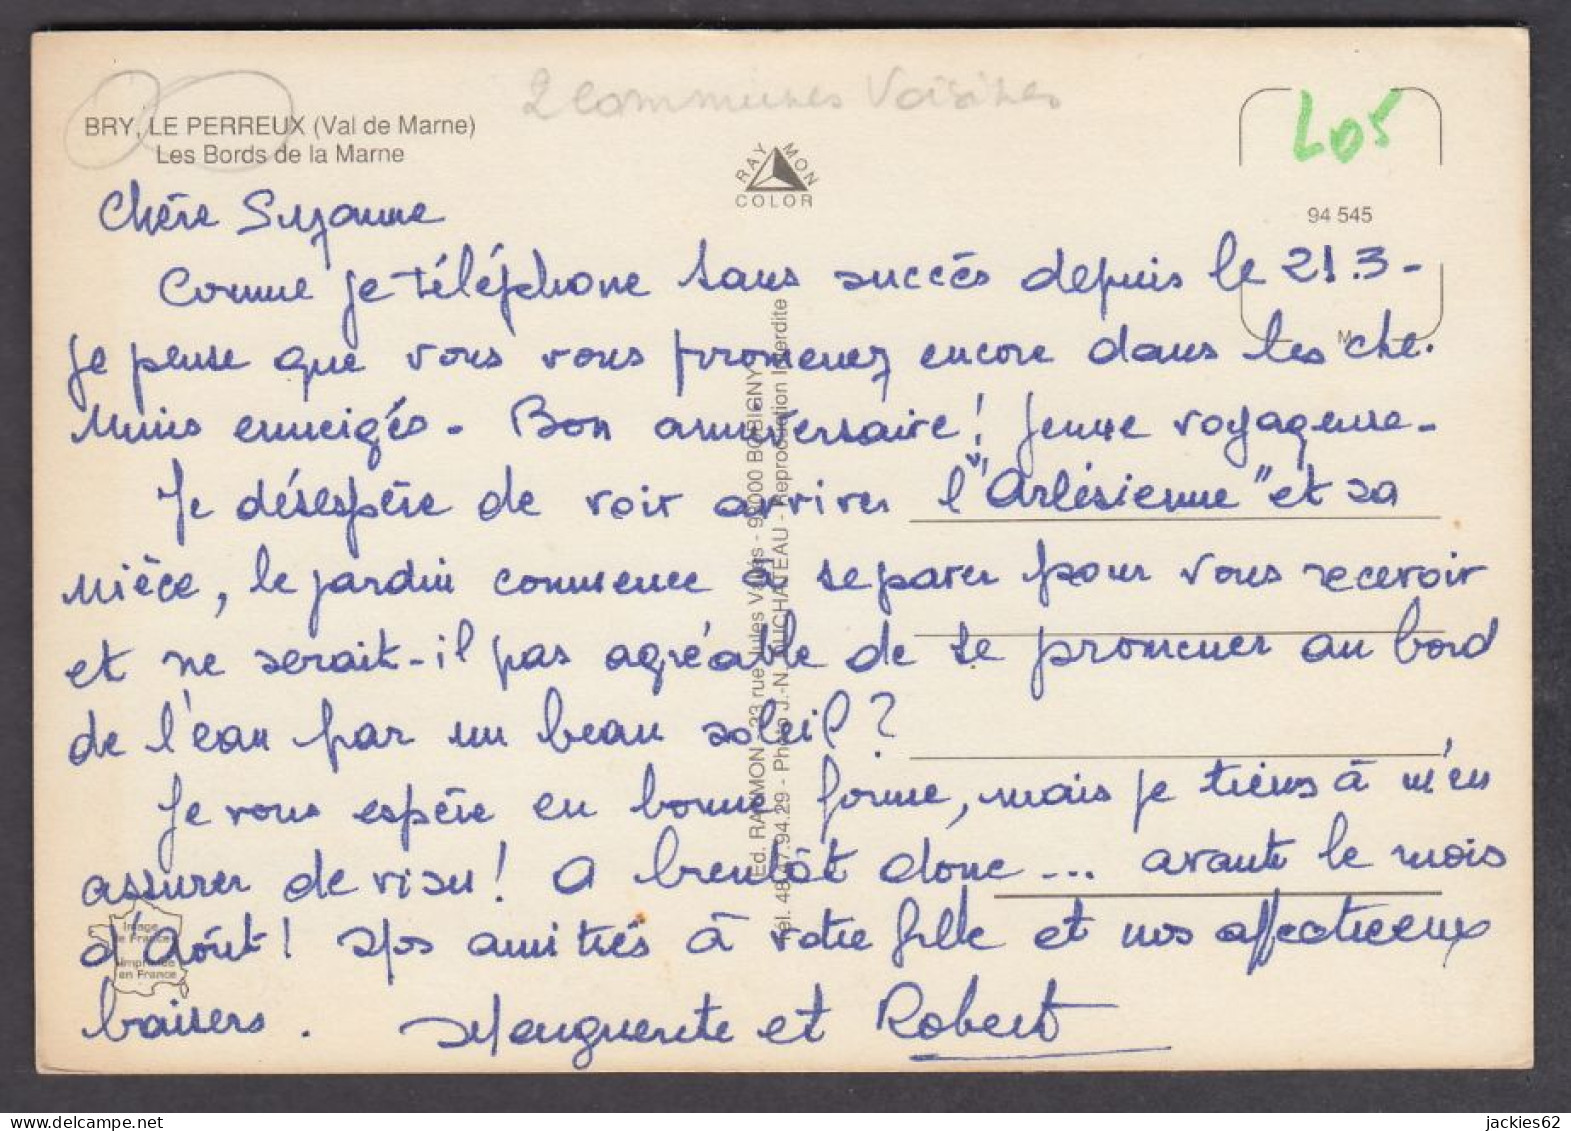 2 communes voisines
BRY, LE PERREUX (Val de Marne)
Les Bords de la Marne
RAYMON
COLOR
L05
94 545
Chère Suzanne
Comme je téléphone sans succès depuis le 21.3-
je pense que vous vous promenez encore dans les che-
mins enneigés - Bon anniversaire! jeune voyageuse -
Je désespère de voir arriver l'"Arlésienne" et sa
nièce, le jardin commence à se parer pour vous recevoir
et ne serait-il pas agréable de se promener au bord
de l'eau par un beau soleil?
Je vous espère en bonne forme, mais je tiens à m'en
assurer de visu! A bientôt donc ... avant le mois
d'août! Nos amitiés à votre fille et nos affectueux
baisers. Marguerite et Robert
Image
de France
imprimée
en France
Ed. RAYMON - 23 rue Jules Vallès - 93000 BOBIGNY
Tél. 48.47.94.29 - Photo J.-N. DUCHATEAU - Reproduction Interdite
jackies62